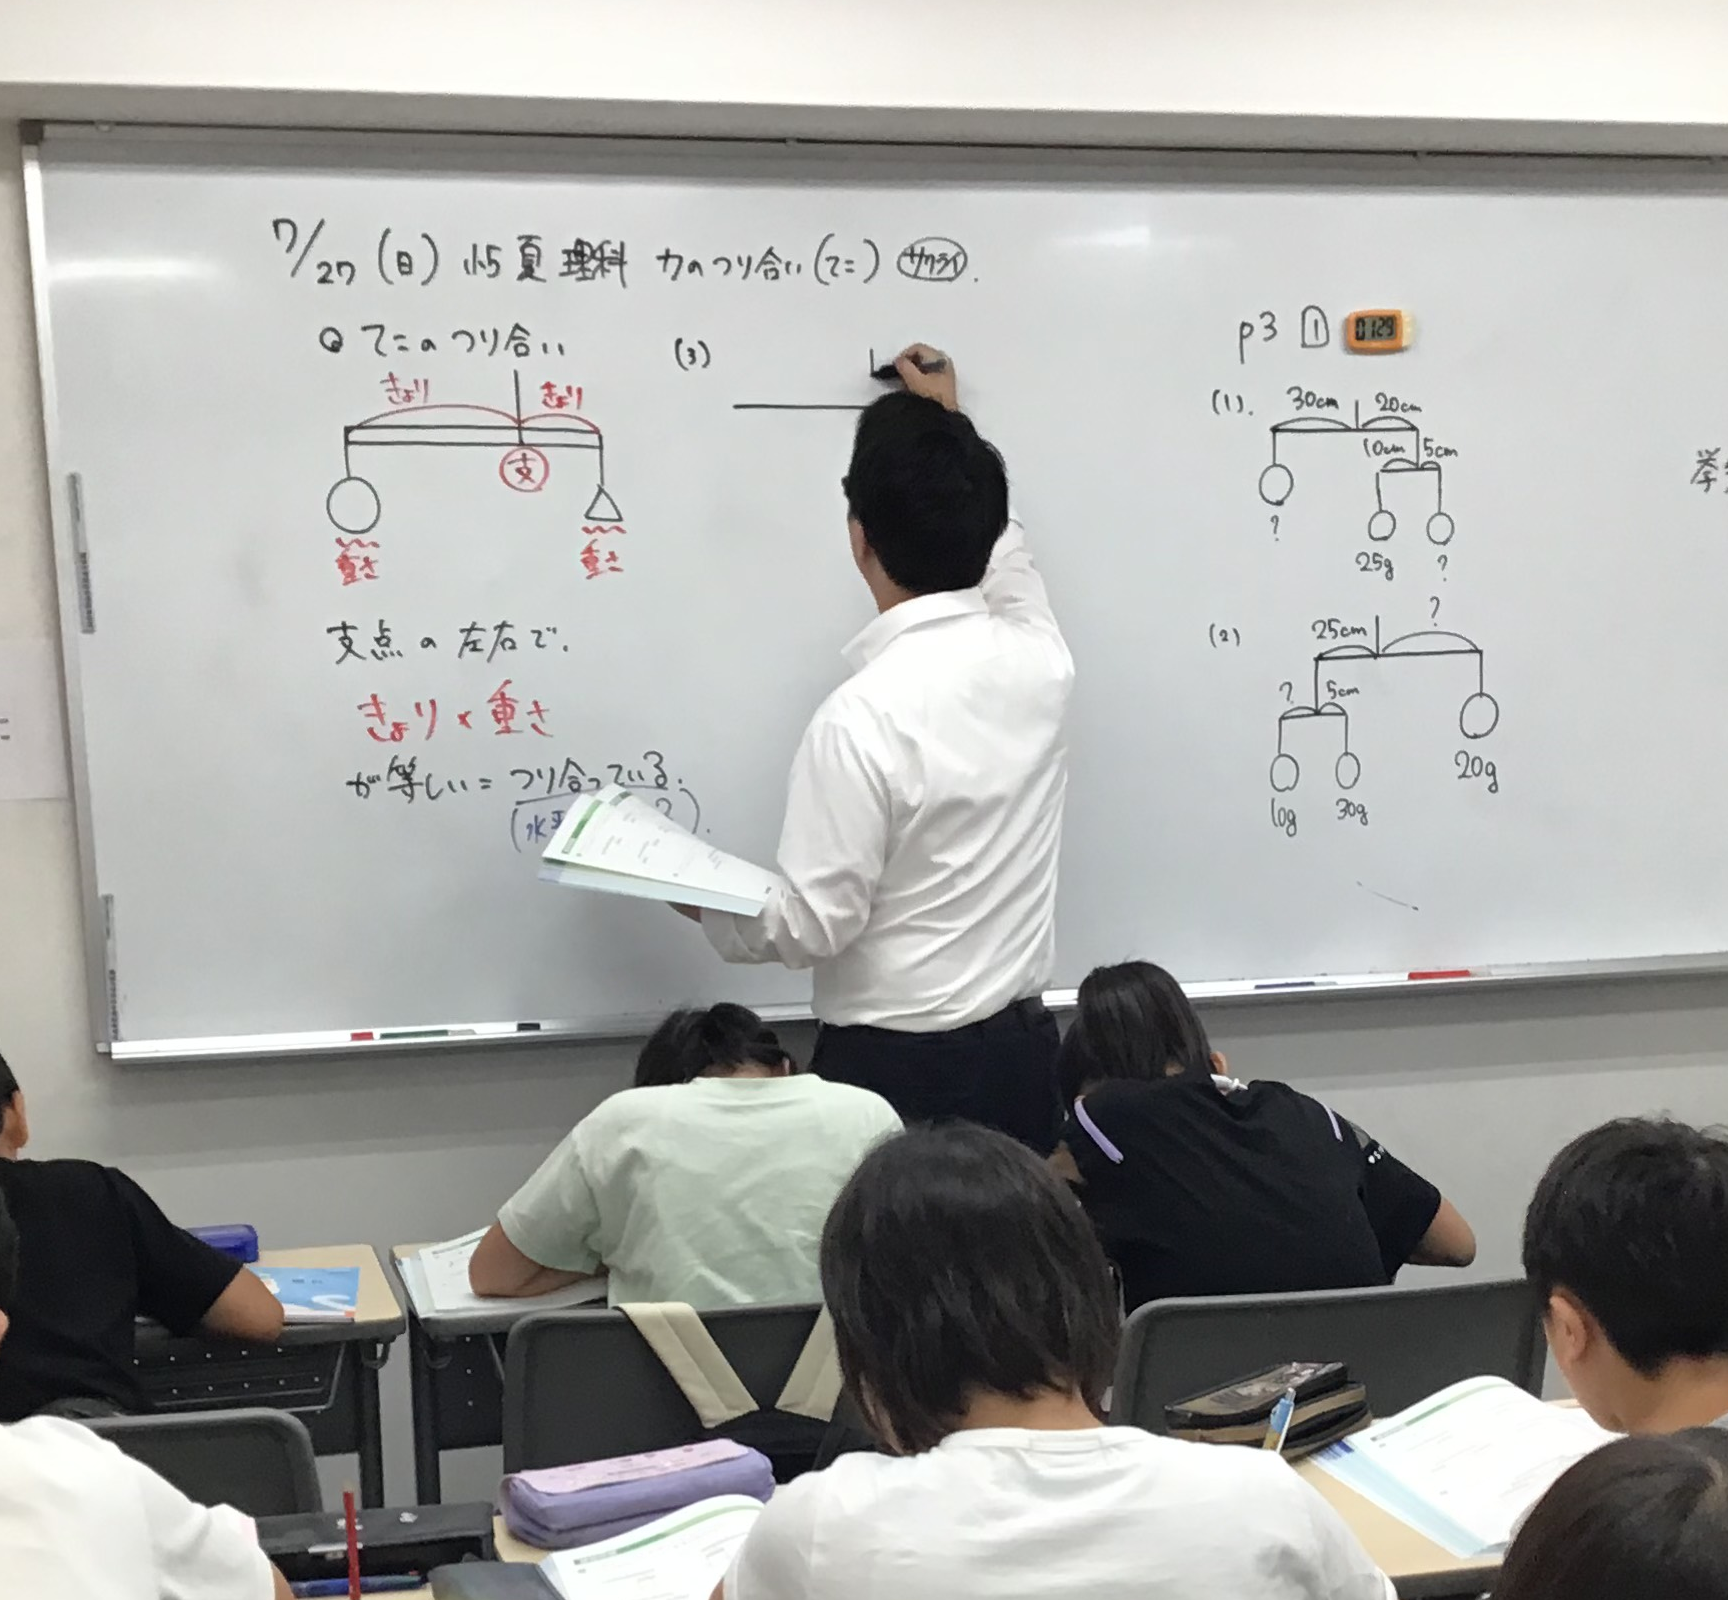 7/27(日) 小5 夏 理科 力のつり合い(てこ) サクライ.
◎ てこのつり合い
きょり きょり
支
重さ 重さ
支点の左右で.
きょり×重さ
が等しい=つり合っている.
(水平
(3)
p3 1 0129
(1). 30cm 20cm
10cm 5cm
?
25g ?
(2) 25cm ?
? 5cm
20g
10g 30g
挙